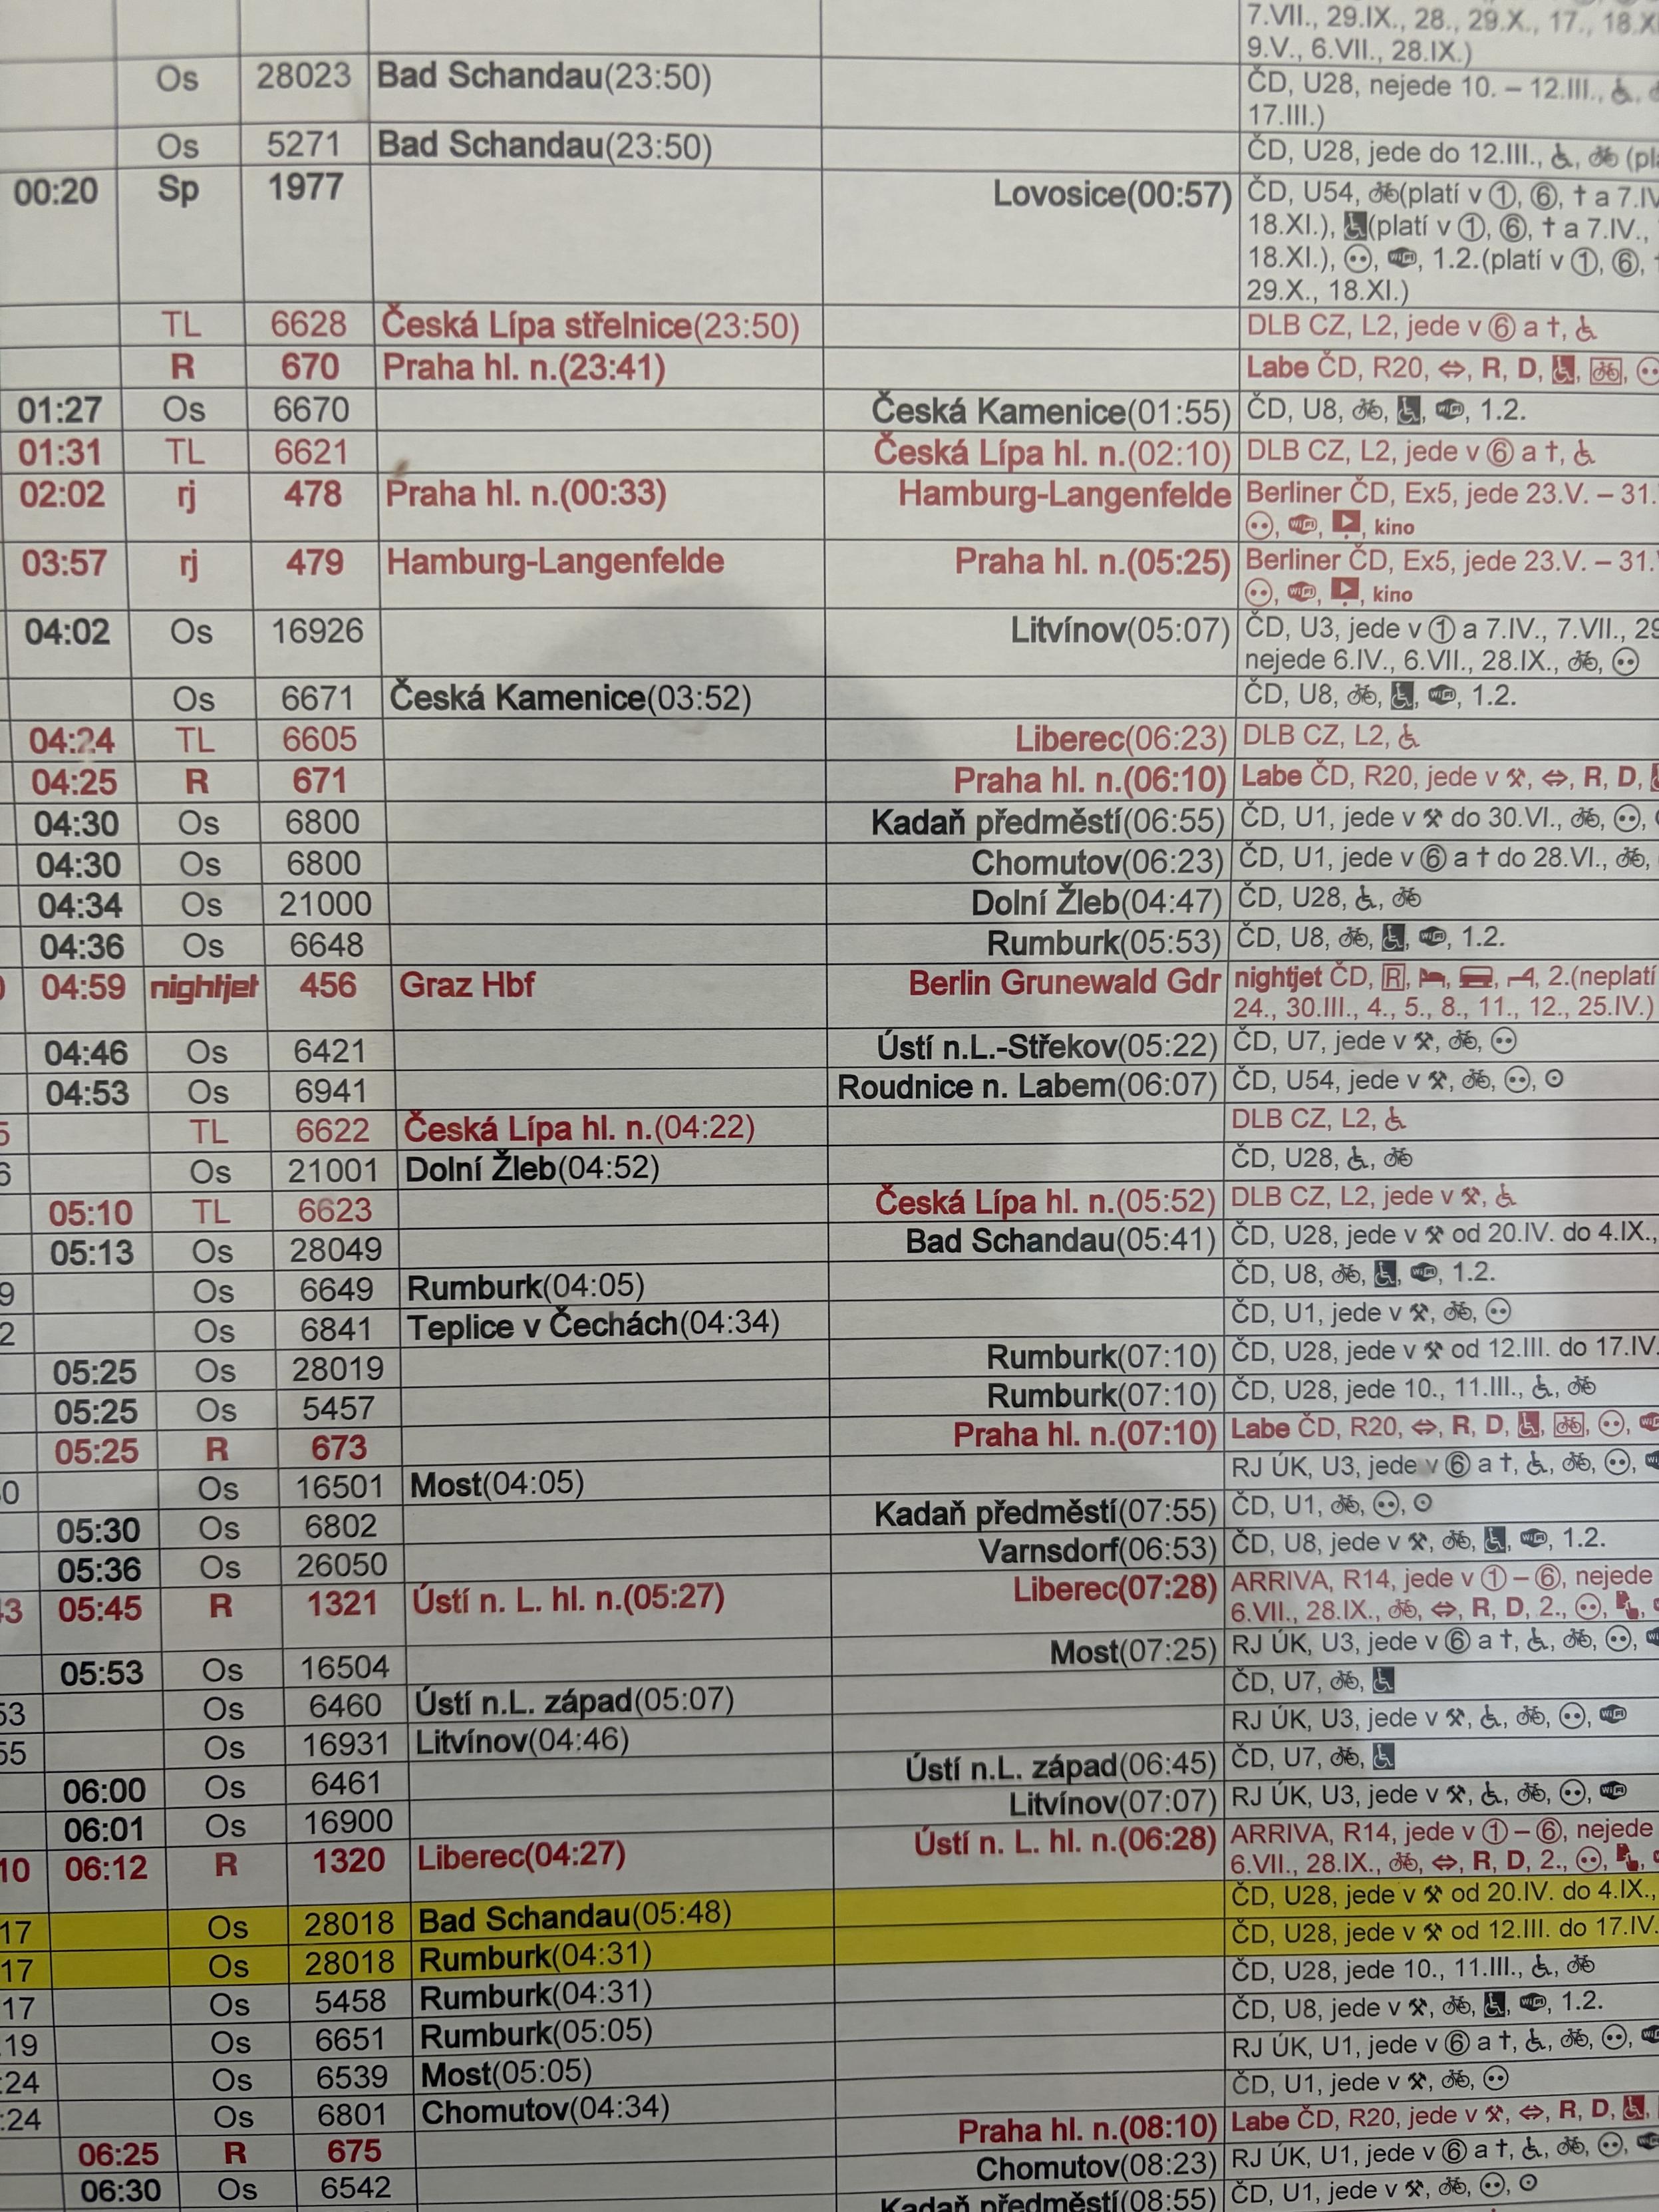 7.VII., 29.IX., 28., 29.X., 17.,
9.V., 6.VII., 28.IX.)
Os 28023 Bad Schandau(23:50) ČD, U28, nejede 10. – 12.III.,
17.III.)
Os 5271 Bad Schandau(23:50) ČD, U28, jede do 12.III.,
00:20 Sp 1977 Lovosice(00:57) ČD, U54, (platí v ①, ⑥, † a
18.XI.), (platí v ①, ⑥, † a 7.IV.,
18.XI.), WiFi, 1.2.(platí v ①, ⑥,
29.X., 18.XI.)
TL 6628 Česká Lípa střelnice(23:50) DLB CZ, L2, jede v ⑥ a †,
R 670 Praha hl. n.(23:41) Labe ČD, R20, ⇔, R, D,
01:27 Os 6670 Česká Kamenice(01:55) ČD, U8, WiFi, 1.2.
01:31 TL 6621 Česká Lípa hl. n.(02:10) DLB CZ, L2, jede v ⑥ a †,
02:02 rj 478 Praha hl. n.(00:33) Hamburg-Langenfelde Berliner ČD, Ex5, jede 23.V. – 31.
WiFi, kino
03:57 rj 479 Hamburg-Langenfelde Praha hl. n.(05:25) Berliner ČD, Ex5, jede 23.V. – 31.
WiFi, kino
04:02 Os 16926 Litvínov(05:07) ČD, U3, jede v ① a 7.IV., 7.VII.,
nejede 6.IV., 6.VII., 28.IX.,
Os 6671 Česká Kamenice(03:52) ČD, U8, WiFi, 1.2.
04:24 TL 6605 Liberec(06:23) DLB CZ, L2,
04:25 R 671 Praha hl. n.(06:10) Labe ČD, R20, jede v ⚒, ⇔, R, D,
04:30 Os 6800 Kadaň předměstí(06:55) ČD, U1, jede v ⚒ do 30.VI.,
04:30 Os 6800 Chomutov(06:23) ČD, U1, jede v ⑥ a † do 28.VI.,
04:34 Os 21000 Dolní Žleb(04:47) ČD, U28,
04:36 Os 6648 Rumburk(05:53) ČD, U8, WiFi, 1.2.
04:59 nightjet 456 Graz Hbf Berlin Grunewald Gdr nightjet ČD, R, 2.(neplatí
24., 30.III., 4., 5., 8., 11., 12., 25.IV.)
04:46 Os 6421 Ústí n.L.-Střekov(05:22) ČD, U7, jede v ⚒,
04:53 Os 6941 Roudnice n. Labem(06:07) ČD, U54, jede v ⚒,
5 TL 6622 Česká Lípa hl. n.(04:22) DLB CZ, L2,
6 Os 21001 Dolní Žleb(04:52) ČD, U28,
05:10 TL 6623 Česká Lípa hl. n.(05:52) DLB CZ, L2, jede v ⚒,
05:13 Os 28049 Bad Schandau(05:41) ČD, U28, jede v ⚒ od 20.IV. do 4.IX.,
9 Os 6649 Rumburk(04:05) ČD, U8, WiFi, 1.2.
2 Os 6841 Teplice v Čechách(04:34) ČD, U1, jede v ⚒,
05:25 Os 28019 Rumburk(07:10) ČD, U28, jede v ⚒ od 12.III. do 17.IV.
05:25 Os 5457 Rumburk(07:10) ČD, U28, jede 10., 11.III.,
05:25 R 673 Praha hl. n.(07:10) Labe ČD, R20, ⇔, R, D,
0 Os 16501 Most(04:05) RJ ÚK, U3, jede v ⑥ a †,
05:30 Os 6802 Kadaň předměstí(07:55) ČD, U1,
05:36 Os 26050 Varnsdorf(06:53) ČD, U8, jede v ⚒, WiFi, 1.2.
43 05:45 R 1321 Ústí n. L. hl. n.(05:27) Liberec(07:28) ARRIVA, R14, jede v ① – ⑥, nejede
6.VII., 28.IX., ⇔, R, D, 2.,
05:53 Os 16504 Most(07:25) RJ ÚK, U3, jede v ⑥ a †,
53 Os 6460 Ústí n.L. západ(05:07) ČD, U7,
55 Os 16931 Litvínov(04:46) RJ ÚK, U3, jede v ⚒, WiFi
06:00 Os 6461 Ústí n.L. západ(06:45) ČD, U7,
06:01 Os 16900 Litvínov(07:07) RJ ÚK, U3, jede v ⚒, WiFi
10 06:12 R 1320 Liberec(04:27) Ústí n. L. hl. n.(06:28) ARRIVA, R14, jede v ① – ⑥, nejede
6.VII., 28.IX., ⇔, R, D, 2.,
17 Os 28018 Bad Schandau(05:48) ČD, U28, jede v ⚒ od 20.IV. do 4.IX.,
17 Os 28018 Rumburk(04:31) ČD, U28, jede v ⚒ od 12.III. do 17.IV.
17 Os 5458 Rumburk(04:31) ČD, U28, jede 10., 11.III.,
:19 Os 6651 Rumburk(05:05) ČD, U8, jede v ⚒, WiFi, 1.2.
:24 Os 6539 Most(05:05) RJ ÚK, U1, jede v ⑥ a †,
:24 Os 6801 Chomutov(04:34) ČD, U1, jede v ⚒,
06:25 R 675 Praha hl. n.(08:10) Labe ČD, R20, jede v ⚒, ⇔, R, D,
06:30 Os 6542 Chomutov(08:23) RJ ÚK, U1, jede v ⑥ a †,
Kadaň předměstí(08:55) ČD, U1, jede v ⚒,